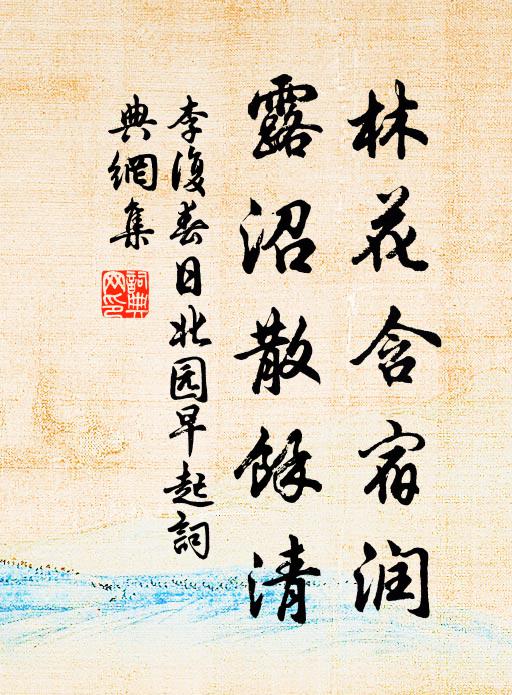 林花含宿润
露沼散餘清
李復春日北园早起詞
典網集
詞典网印